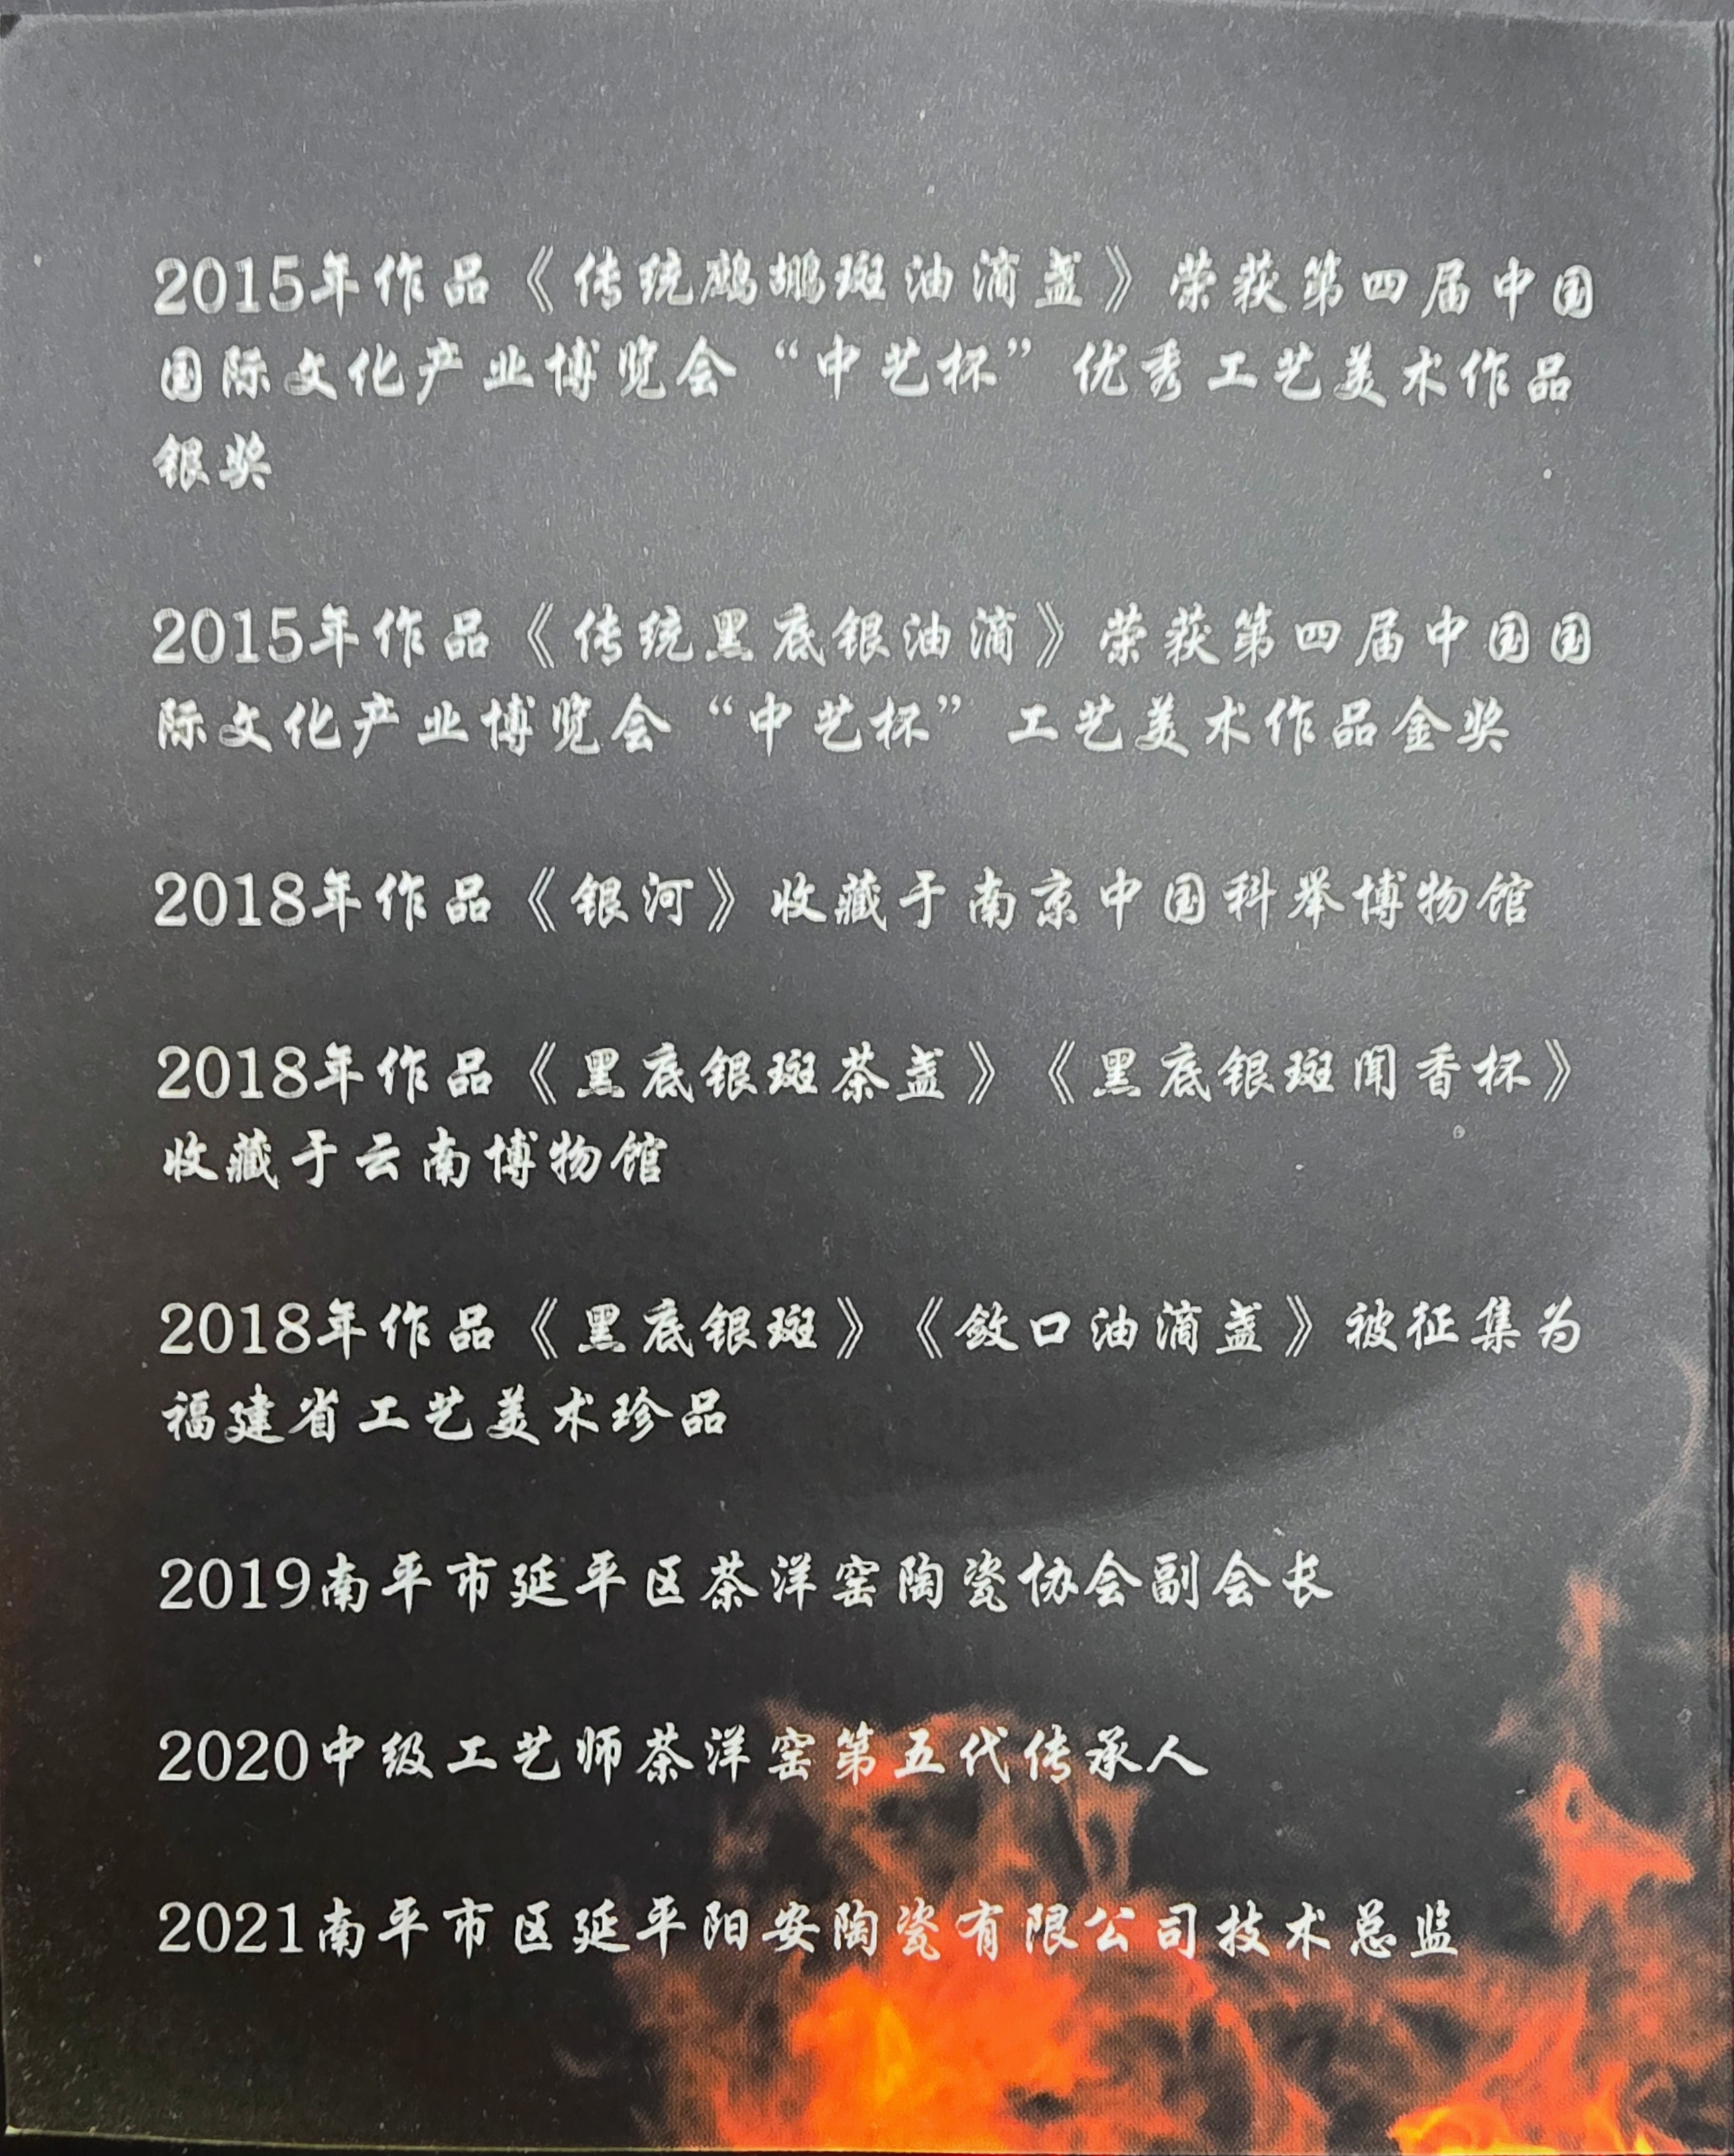 2015年作品《传统鹧鹕斑油滴盏》荣获第四届中国
国际文化产业博览会“中艺杯”优秀工艺美术作品
银奖
2015年作品《传统黑底银油滴》荣获第四届中国国
际文化产业博览会“中艺杯”工艺美术作品金奖
2018年作品《银河》收藏于南京中国科举博物馆
2018年作品《黑底银斑茶盏》《黑底银斑闻香杯》
收藏于云南博物馆
2018年作品《黑底银斑》《敛口油滴盏》被征集为
福建省工艺美术珍品
2019南平市延平区茶洋窑陶瓷协会副会长
2020中级工艺师茶洋窑第五代传承人
2021南平市区延平阳安陶瓷有限公司技术总监